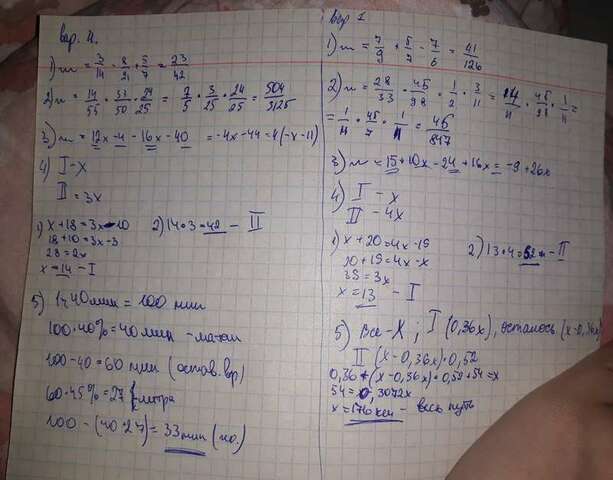 вар. 4.
1) m = 3/14 · 8/21 + 5/7 = 23/42
2) m = 14/55 · 33/50 · 24/25 = 2/5 · 3/25 · 24/25 = 504/3125
3) m = 12x - 4 - 16x - 40 = -4x - 44 = 4(-x-11)
4) I - x
II = 3x
1) x + 18 = 3x - 10
18 + 10 = 3x - 3
28 = 2x
x = 14 - I
2) 14 · 3 = 42 - II
5) 1ч 40 мин = 100 мин
100 · 40% = 40 мин - матем
100 - 40 = 60 мин (остав. вр)
60 · 45% = 27 литра
100 - (40 + 27) = 33 мин
вар 1
1) m = 7/9 + 5/7 - 7/6 = 41/126
2) m = 28/33 · 45/98 · 1/2 · 3/11 = 14/11 · 45/98 · 1/11 =
= 1/11 · 45/7 · 1/11 = 45/847
3) m = 15 + 10x - 24 + 16x = -9 + 26x
4) I - x
II - 4x
1) x + 20 = 4x - 19
20 + 19 = 4x - x
39 = 3x
x = 13 - I
2) 13 · 4 = 52 - II
5) Все - X; I (0,36x), осталось (x - 0,36x)
II (x - 0,36x) · 0,52
0,36 + (x - 0,36x) · 0,52 + 54 = x
54 = 0,3072x
x = 176 км - весь путь